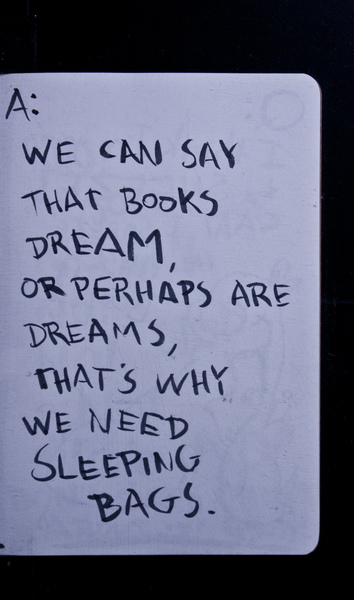 A:
WE CAN SAY
THAT BOOKS
DREAM,
OR PERHAPS ARE
DREAMS,
THAT'S WHY
WE NEED
SLEEPING
BAGS.